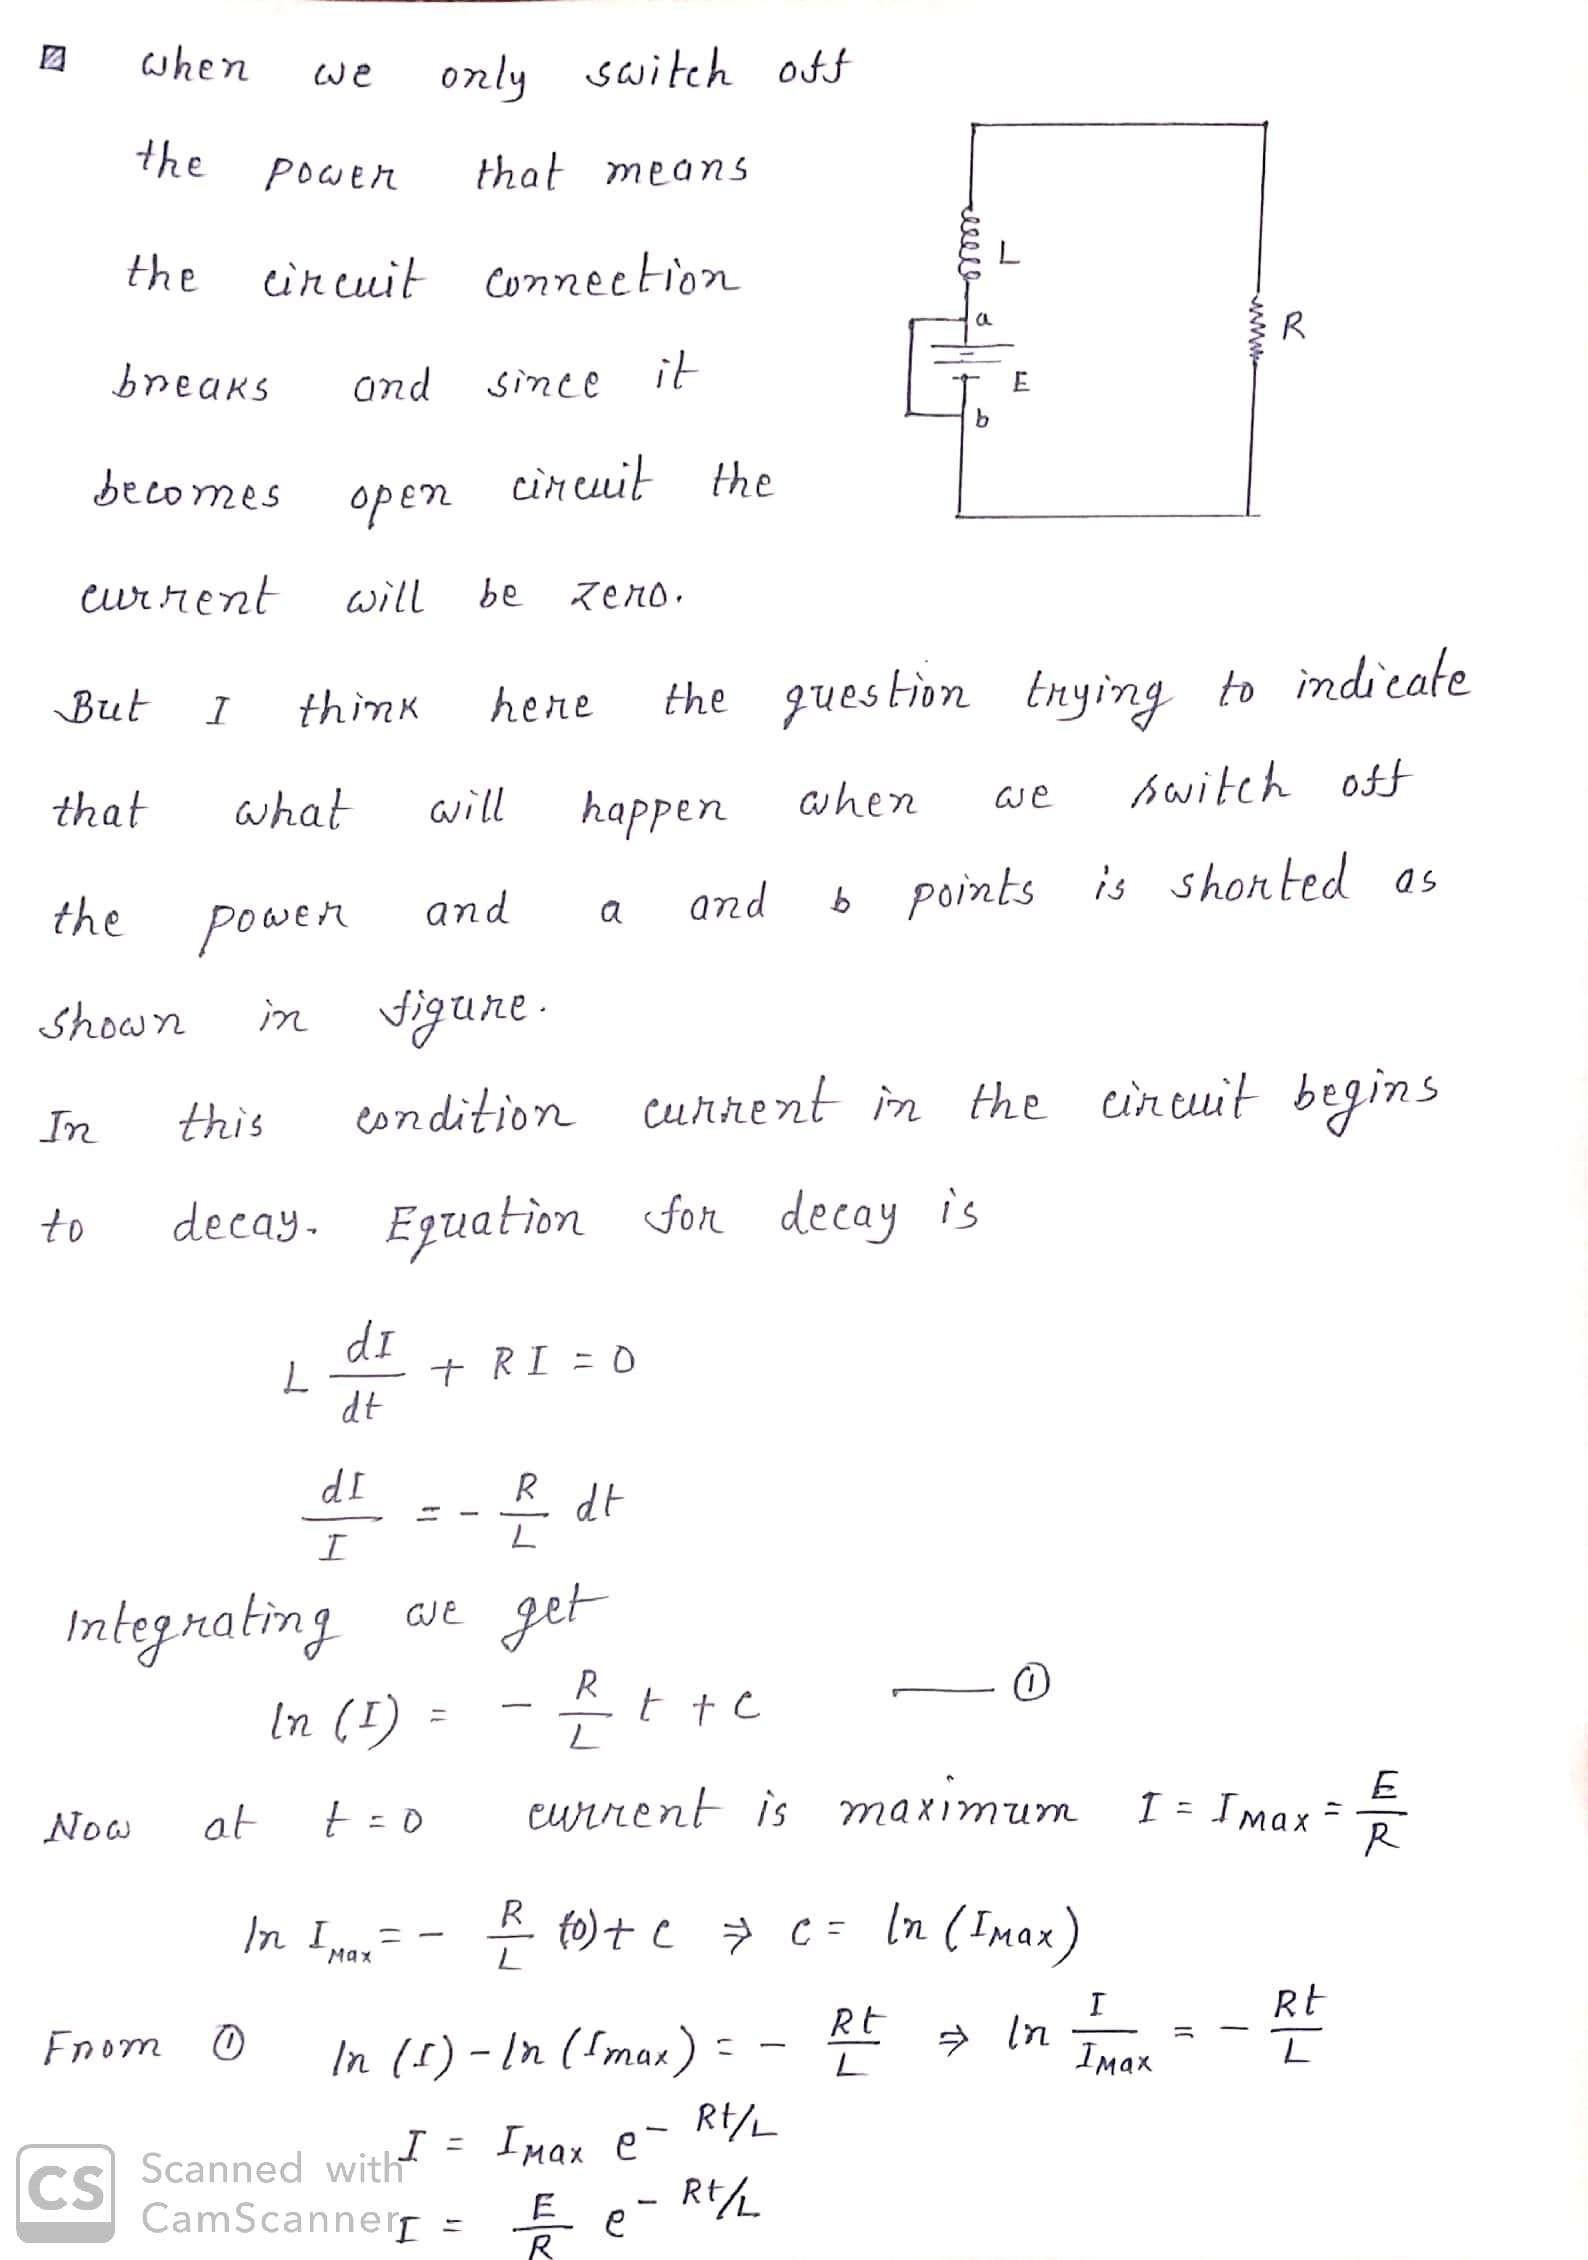 when we only switch off
the power that means
the circuit connection
breaks and since it
becomes open circuit the
current will be zero.
L
a
E
b
R
But I think here the question trying to indicate
that what will happen when we switch off
the power and a and b points is shorted as
shown in figure.
In this condition current in the circuit begins
to decay. Equation for decay is
L dI/dt + RI = 0
dI/I = - R/L dt
Integrating we get
ln (I) = - R/L t + c — ①
Now at t = 0 current is maximum I = IMax = E/R
ln IMax = - R/L (0) + c ⇒ c = ln (IMax)
From ① ln (I) - ln (Imax) = - Rt/L ⇒ ln I/IMax = - Rt/L
I = IMax e^- Rt/L
I = E/R e^- Rt/L
CS Scanned with
CamScanner